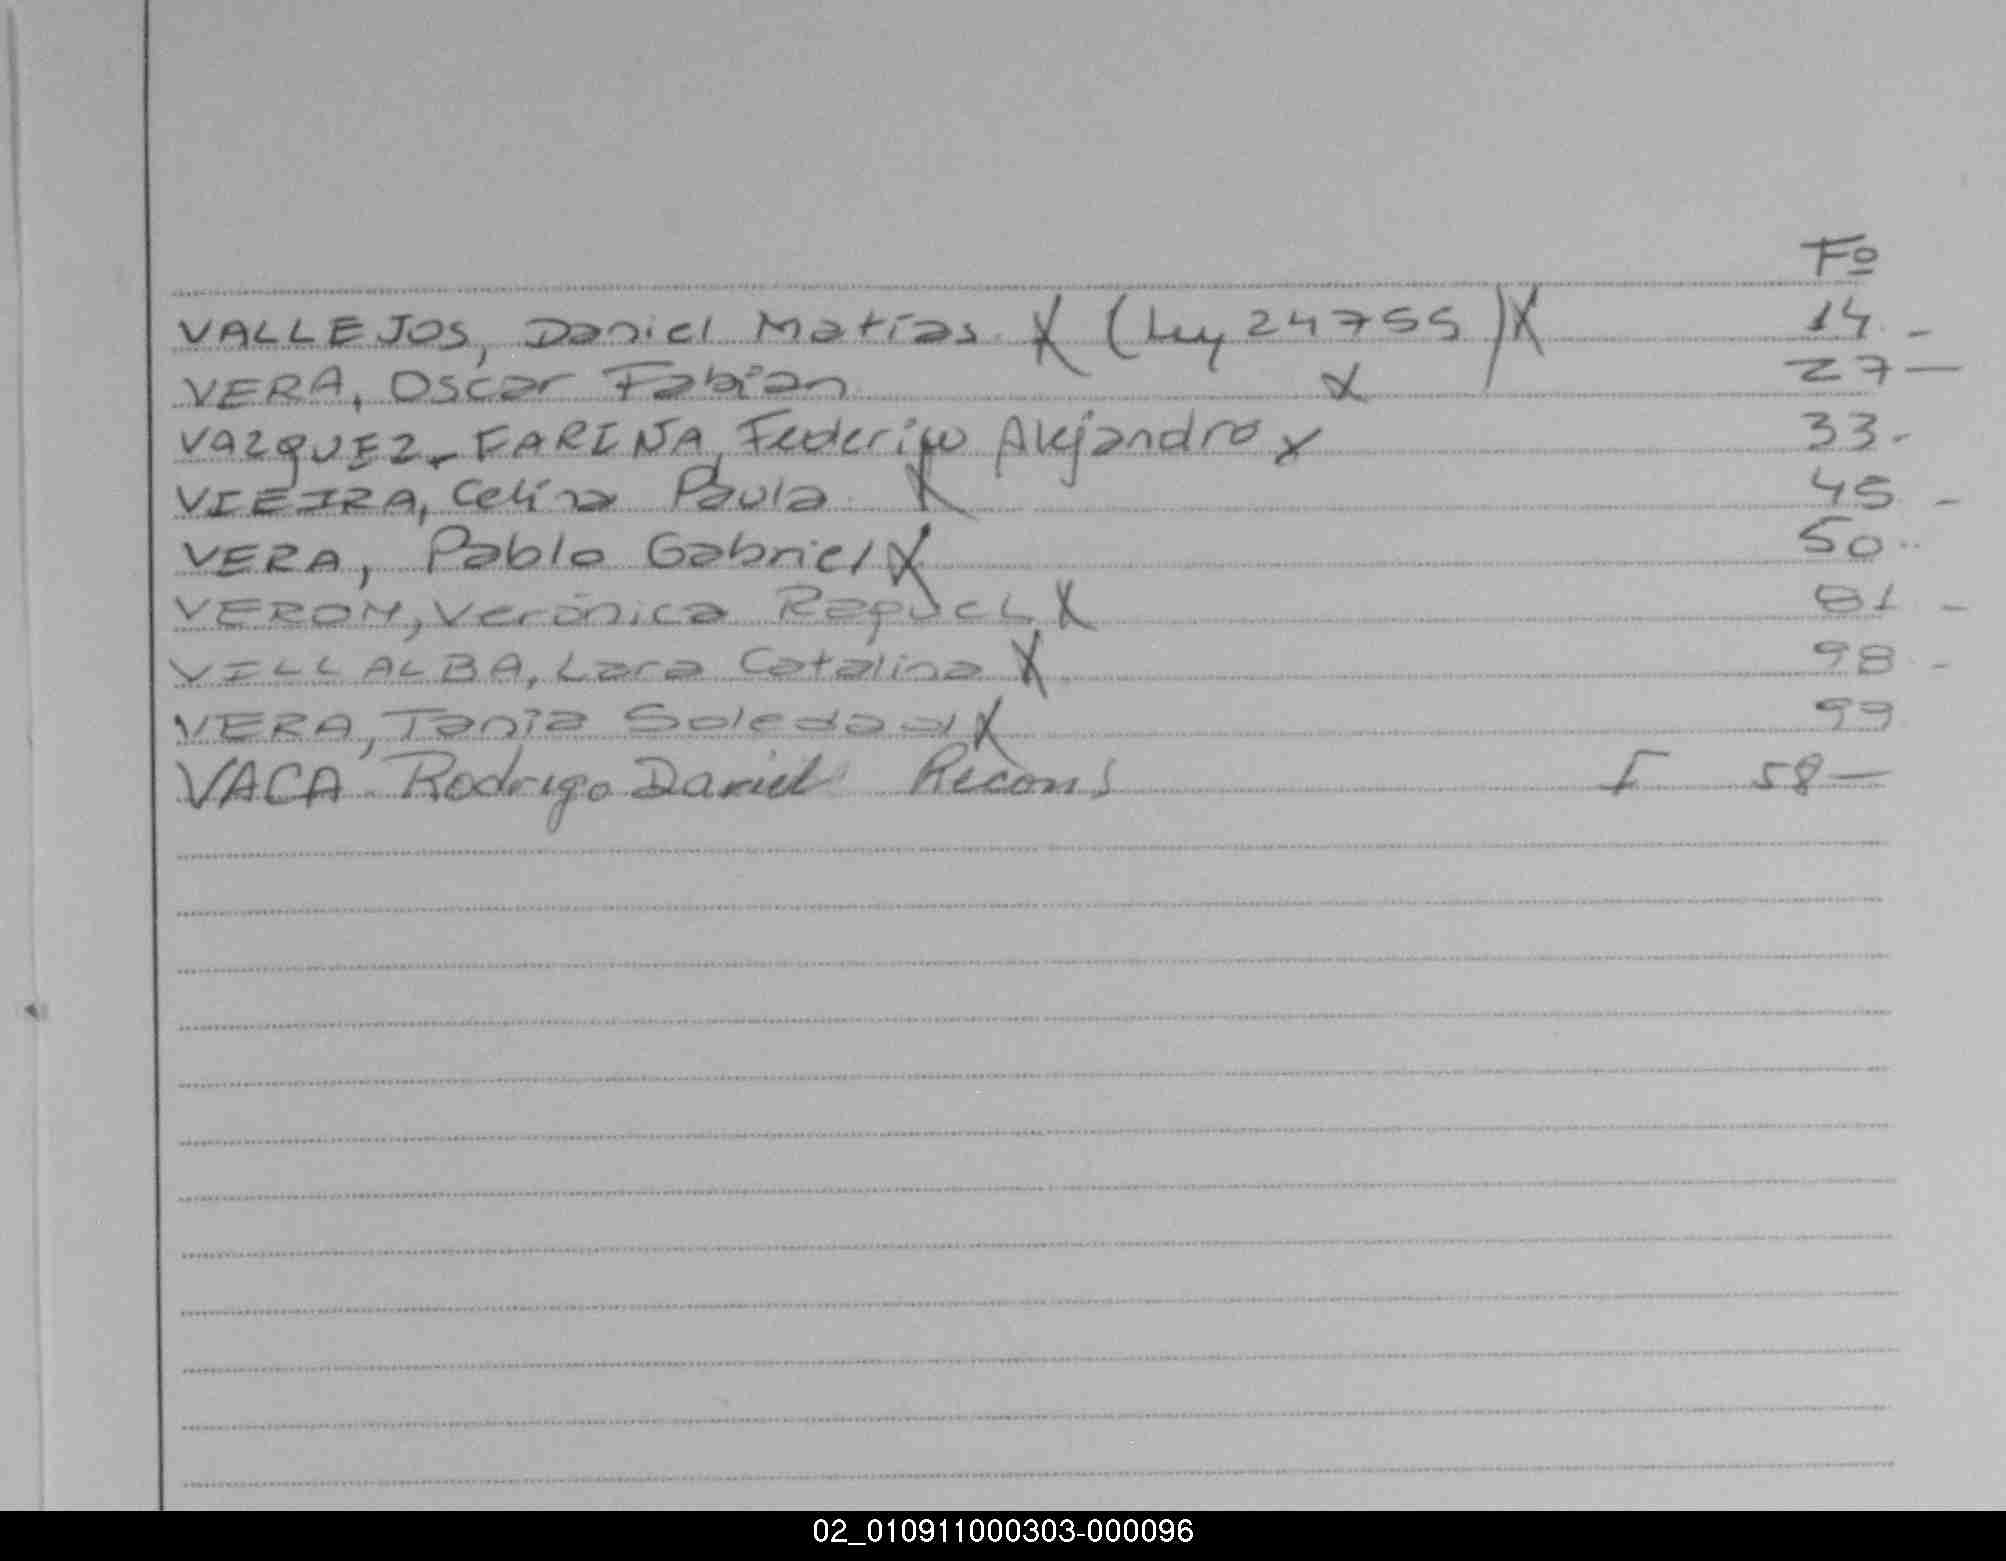 Fº
VALLEJOS, Daniel Matías X (Ley 24755) X 14. -
VERA, Oscar Fabian X 27 —
VAZQUEZ - FARIÑA, Federico Alejandro X 33. -
VIEIRA, Celina Paula X 45 -
VERA, Pablo Gabriel X 50 -
VERON, Verónica Raquel X 81 -
VILLALBA, Lara Catalina X 98 -
VERA, Tania Soledad X 99
VACA Rodrigo Daniel Recons I 58 —
02_010911000303-000096